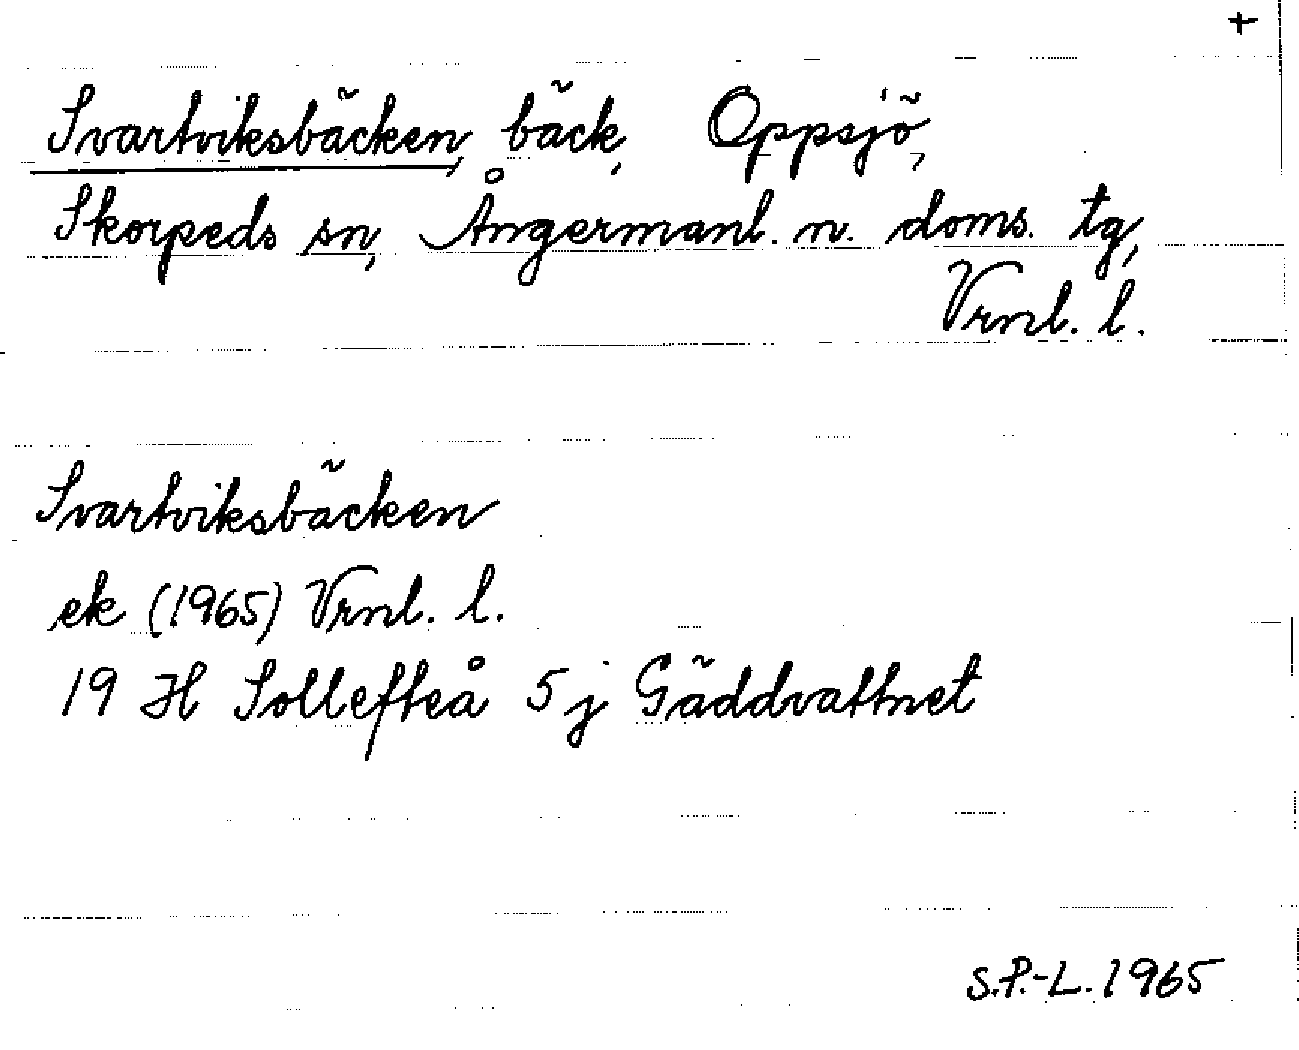 +
Svartviksbäcken, bäck, Oppsjö,
Skorpeds sn, Ångermanl. n. doms. tg,
Vrnl. l.
Svartviksbäcken
ek (1965) Vrnl. l.
19 H Sollefteå 5 j Gäddvattnet
S.P.-L. 1965